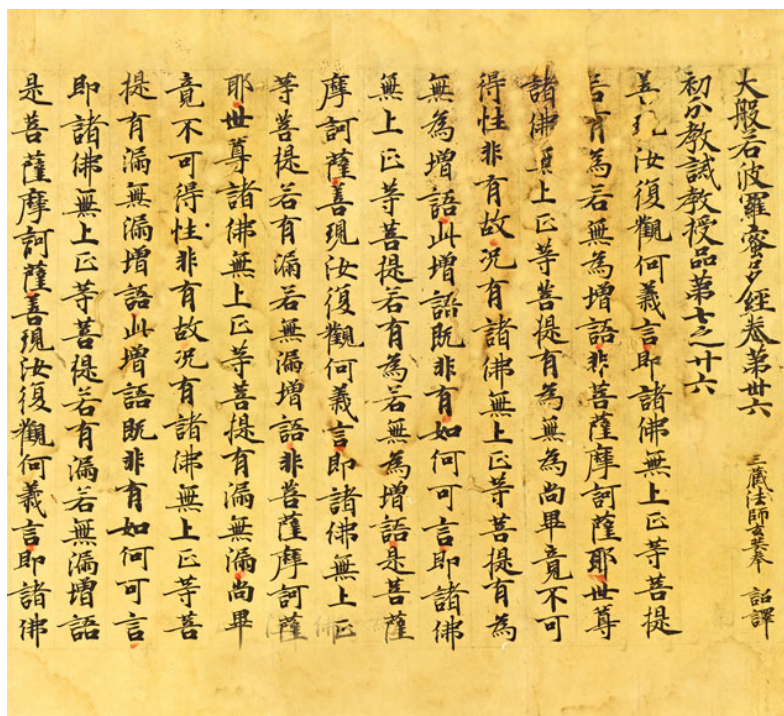 大般若波羅蜜多經卷第卅六
三藏法師玄奘奉 詔譯
初分教誡教授品第七之廿六
善現汝復觀何義言即諸佛無上正等菩提
若有為若無為增語非菩薩摩訶薩耶世尊
諸佛無上正等菩提有為無為尚畢竟不可
得性非有故況有諸佛無上正等菩提有為
無為增語此增語既非有如何可言即諸佛
無上正等菩提若有為若無為增語是菩薩
摩訶薩善現汝復觀何義言即諸佛無上正
等菩提若有漏若無漏增語非菩薩摩訶薩
耶世尊諸佛無上正等菩提有漏無漏尚畢
竟不可得性非有故況有諸佛無上正等菩
提有漏無漏增語此增語既非有如何可言
即諸佛無上正等菩提若有漏若無漏增語
是菩薩摩訶薩善現汝復觀何義言即諸佛